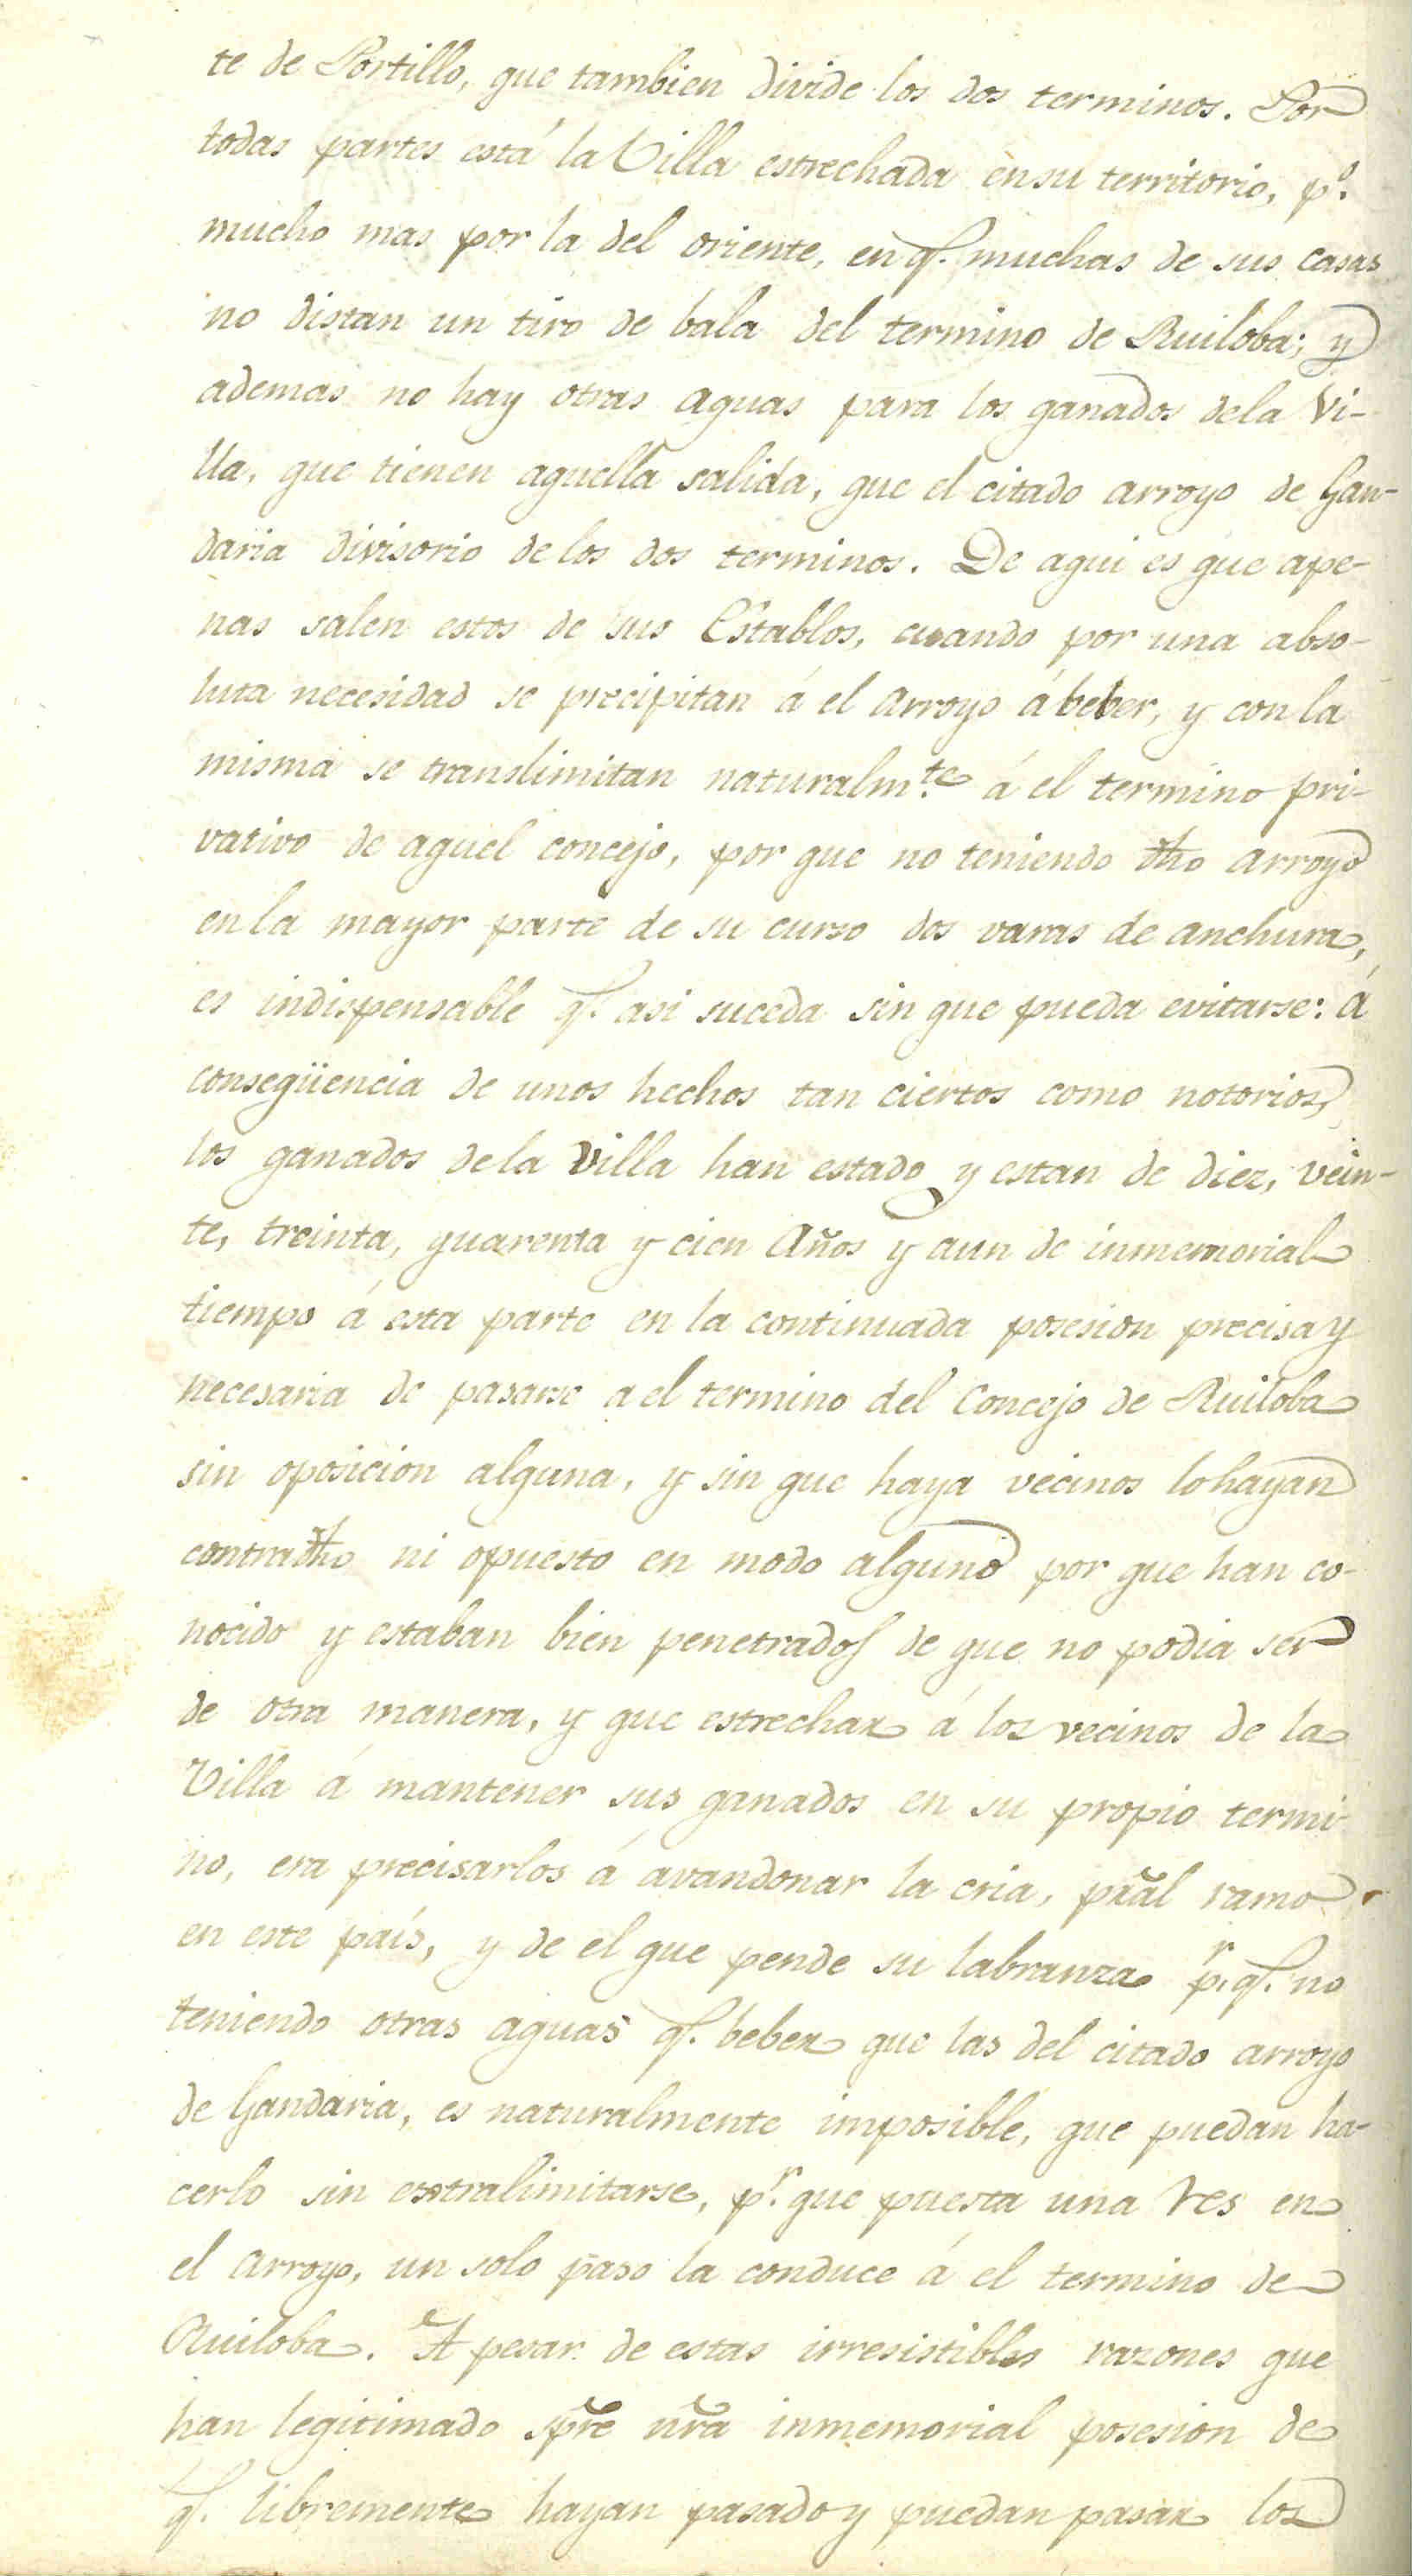 te de Portillo, que tambien divide los dos terminos. Por
todas partes está la Villa estrechada en su territorio, pº.
mucho mas por la del oriente, en q.e muchas de sus casas
no distan un tiro de bala del termino de Ruiloba; y
ademas no hay otras aguas para los ganados dela Vi-
lla, que tienen aquella salida, que el citado arroyo de Gan-
daria divisorio de los dos terminos. De aqui es que ape-
nas salen estos de sus Establos, cuando por una abso-
luta necesidad se precipitan á el arroyo á beber, y con la
misma se translimitan naturalm.te á el termino pri-
vativo de aquel concejo, por que no teniendo dho arroyo
en la mayor parte de su curso dos varas de anchura,
es indispensable q.e asi suceda sin que pueda evitarse: á
conseqüencia de unos hechos tan ciertos como notorios,
los ganados dela Villa han estado y estan de diez, vein-
te, treinta, quarenta y cien Años y aun de inmemorial
tiempo á esta parte en la continuada posesion precisa y
necesaria de pasarse a el termino del Concejo de Ruiloba
sin oposicion alguna, y sin que haya vecinos lo hayan
contradho ni opuesto en modo alguno por que han co-
nocido y estaban bien penetrados de que no podia ser
de otra manera, y que estrechar á los vecinos de la
Villa á mantener sus ganados en su propio termi-
no, era precisarlos á avandonar la cria, pral ramo
en este país, y de el que pende su labranza p.r q.e no
teniendo otras aguas q.e beber que las del citado arroyo
de Gandaria, es naturalmente imposible, que puedan ha-
cerlo sin extralimitarse, p.r que puesta una res en
el arroyo, un solo paso la conduce á el termino de
Ruiloba. A pesar de estas irresistibles razones que
han legitimado spre nra inmemorial posesion de
q.e libremente hayan pasado y puedan pasar los